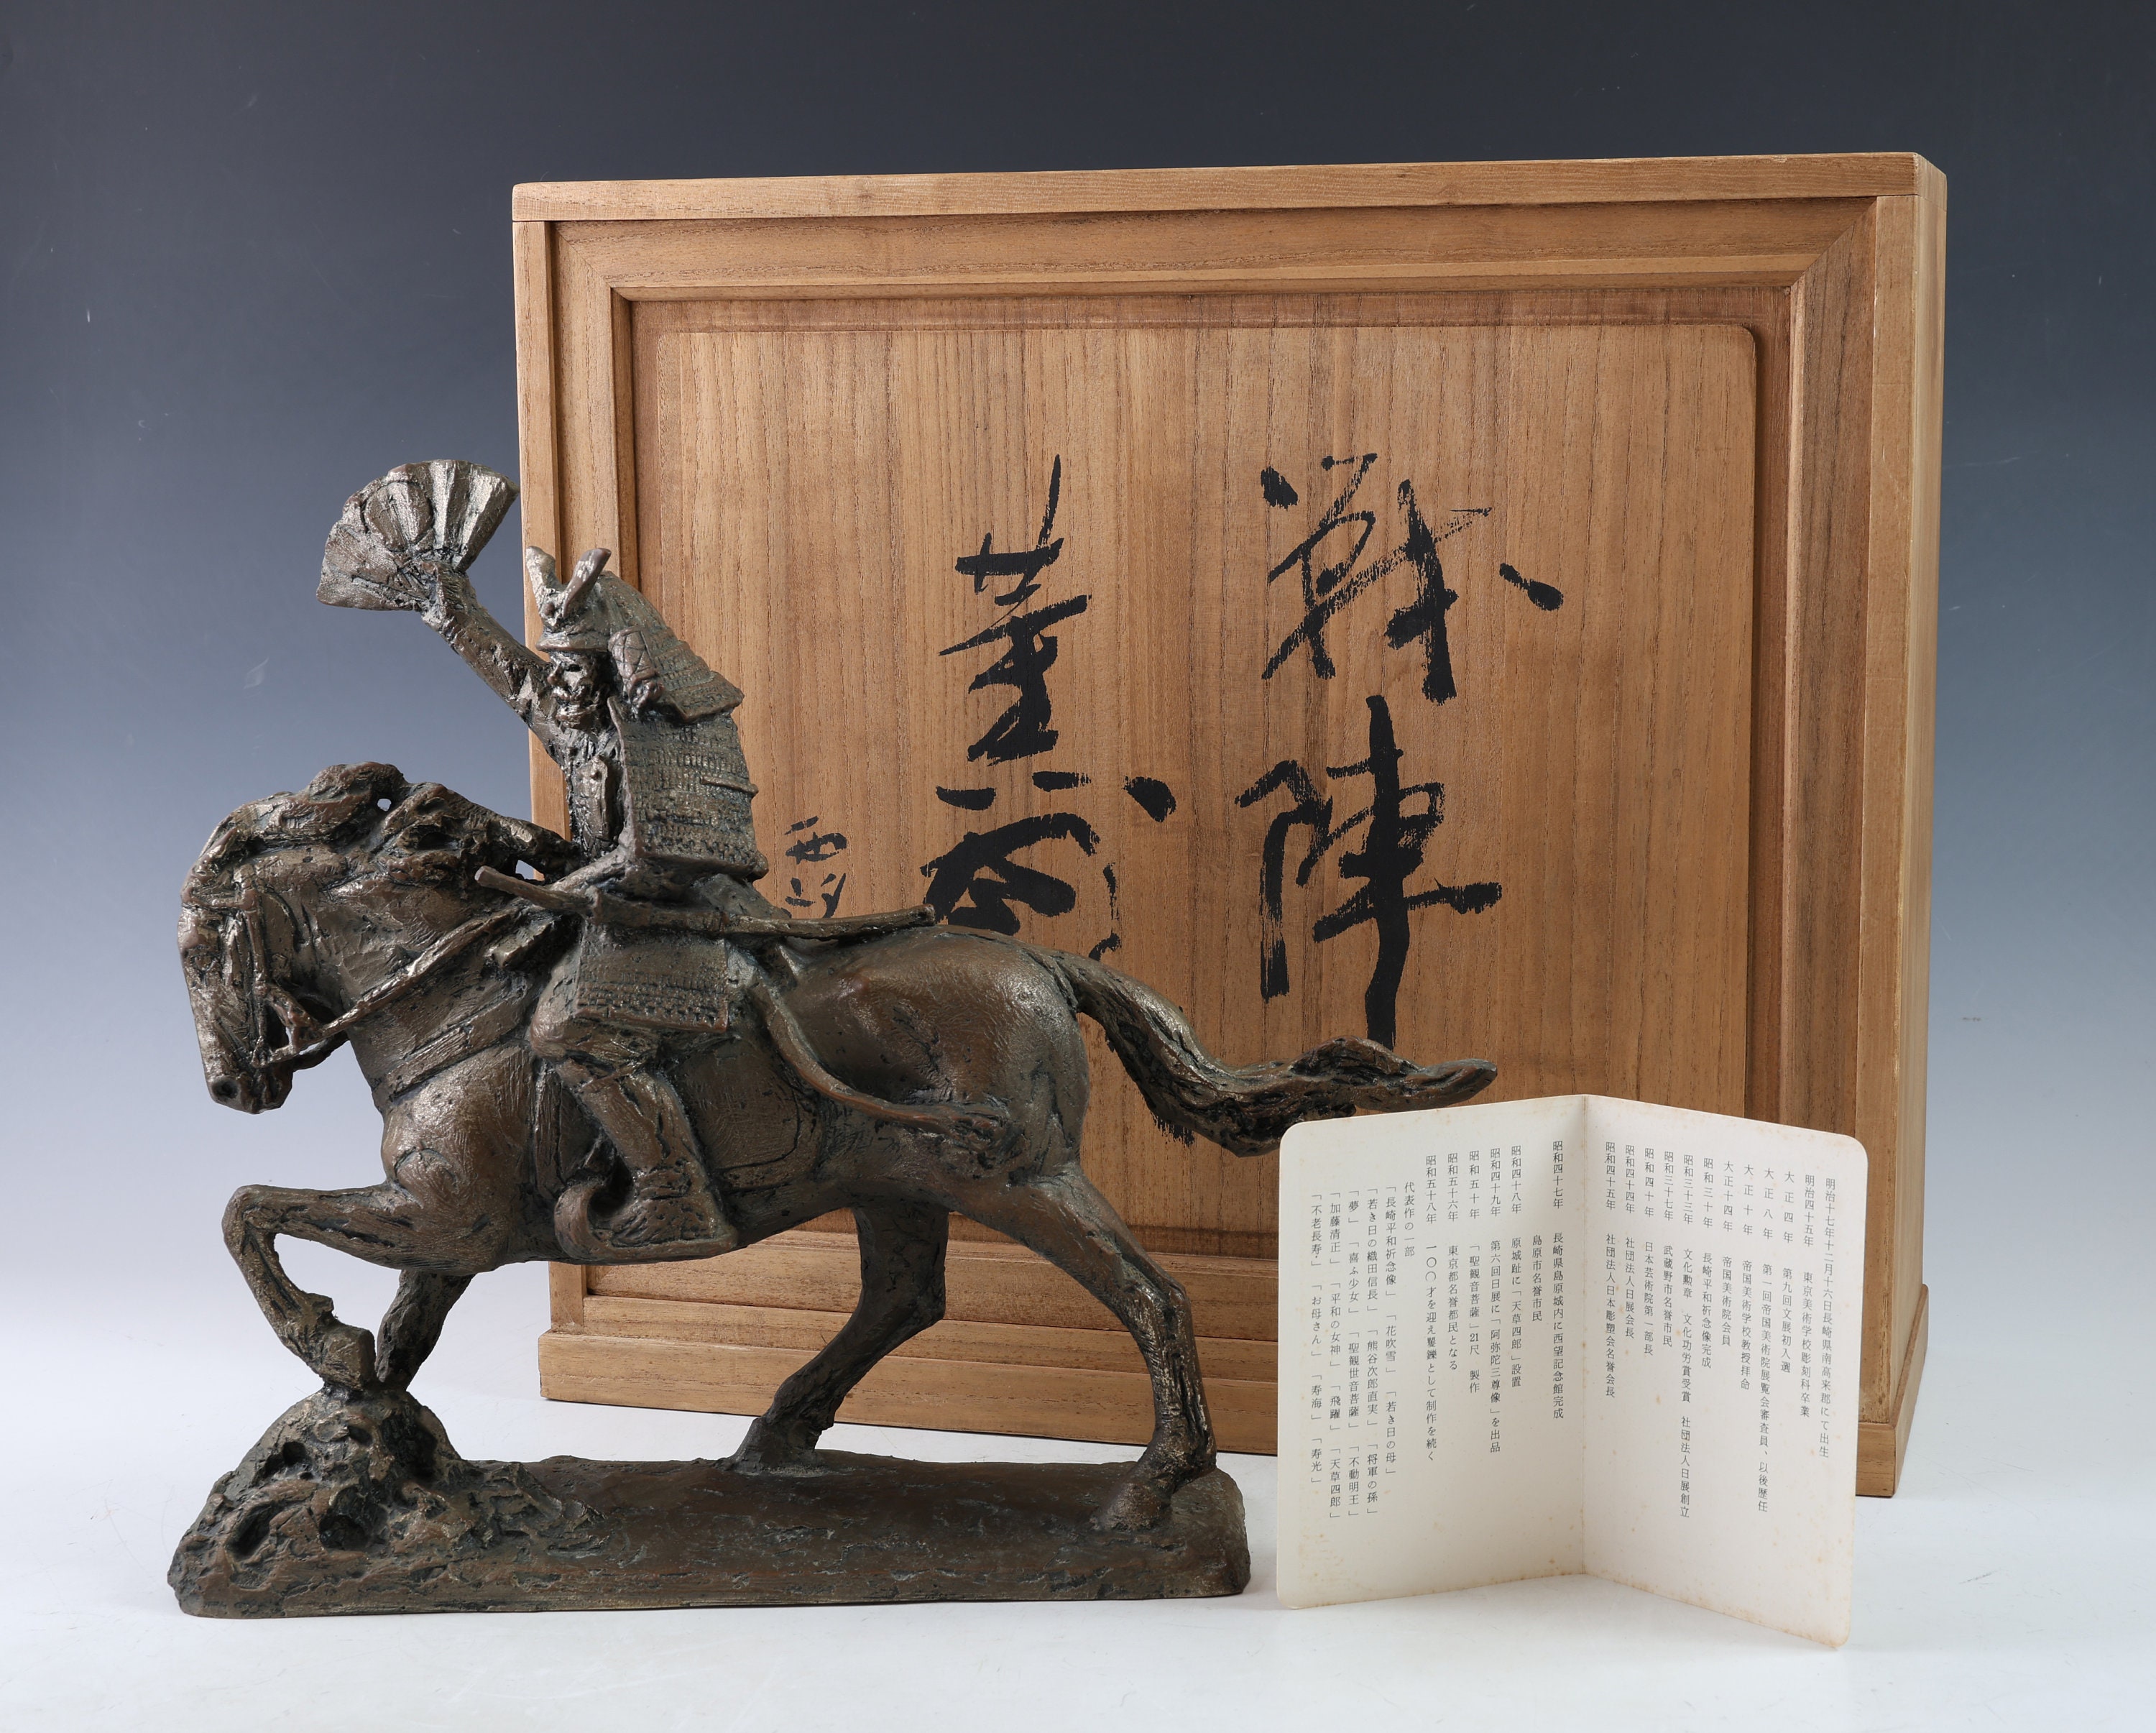 戦陣
西望
明治十七年十二月十六日長崎県南高来郡にて出生
明治四十五年 東京美術学校彫刻科卒業
大正四年 第九回文展初入選
大正八年 第一回帝国美術院展覧会審査員、以後歴任
大正十年 帝国美術学校教授拝命
大正十四年 帝国美術院会員
昭和三十年 長崎平和祈念像完成
昭和三十三年 文化勲章 文化功労賞受賞 社団法人日展創立
昭和三十七年 武蔵野市名誉市民
昭和四十年 日本芸術院第一部長
昭和四十四年 社団法人日展会長
昭和四十五年 社団法人日本彫塑会名誉会長
昭和四十七年 長崎県島原城内に西望記念館完成
島原市名誉市民
昭和四十八年 原城趾に「天草四郎」設置
昭和四十九年 第六回日展に「阿弥陀三尊像」を出品
昭和五十年 「聖観音菩薩」21尺 製作
昭和五十六年 東京都名誉都民となる
昭和五十八年 一〇〇才を迎え矍鑠として制作を続く
代表作の一部
「長崎平和祈念像」 「花吹雪」 「若き日の母」
「若き日の織田信長」 「熊谷次郎直実」 「将軍の孫」
「夢」 「喜ふ少女」 「聖観世音菩薩」 「不動明王」
「加藤清正」 「平和の女神」 「飛躍」 「天草四郎」
「不老長寿」 「お母さん」 「寿海」 「寿光」